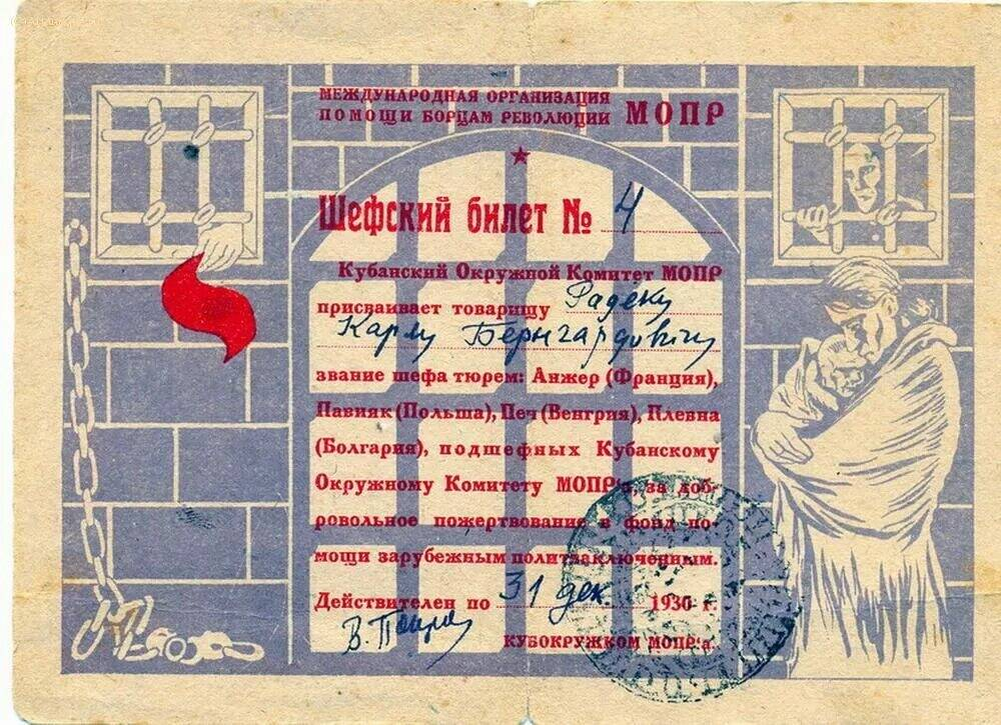 МЕЖДУНАРОДНАЯ ОРГАНИЗАЦИЯ
ПОМОЩИ БОРЦАМ РЕВОЛЮЦИИ МОПР
Шефский билет № 4
Кубанский Окружной Комитет МОПР
присваивает товарищу Радеку
Карлу Бернгардовичу
звание шефа тюрем: Анжер (Франция),
Павияк (Польша), Печ (Венгрия), Плевна
(Болгария), подшефных Кубанскому
Окружному Комитету МОПР'а, за доб-
ровольное пожертвование в фонд по-
мощи зарубежным политзаключенным.
Действителен по 31 дек 1930 г.
КУБОКРУЖКОМ МОПР'а.